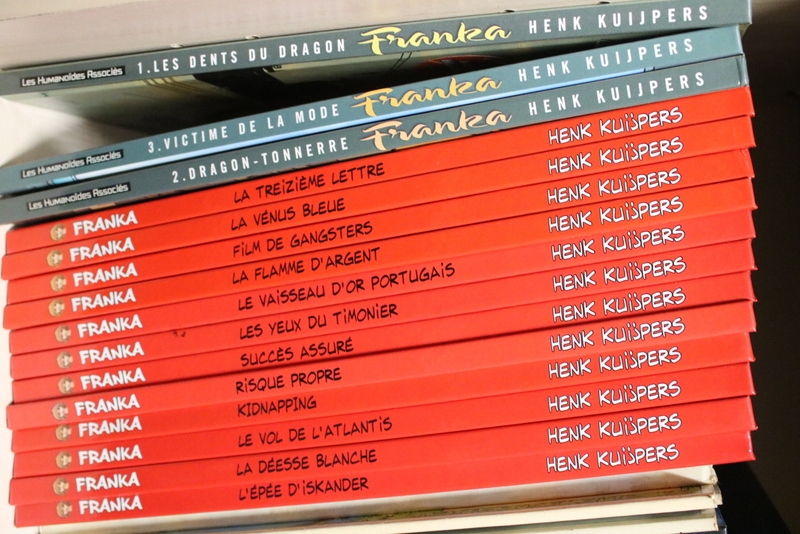 Les Humanoïdes Associés 1.LES DENTS DU DRAGON Franka HENK KUIJPERS
Les Humanoïdes Associés 3.VICTIME DE LA MODE Franka HENK KUIJPERS
Les Humanoïdes Associés 2.DRAGON-TONNERRE Franka HENK KUIJPERS
FRANKA LA TREIZIÈME LETTRE HENK KUIJPERS
FRANKA LA VÉNUS BLEUE HENK KUIJPERS
FRANKA FILM DE GANGSTERS HENK KUIJPERS
FRANKA LA FLAMME D'ARGENT HENK KUIJPERS
FRANKA LE VAISSEAU D'OR PORTUGAIS HENK KUIJPERS
FRANKA LES YEUX DU TIMONIER HENK KUIJPERS
FRANKA SUCCÈS ASSURÉ HENK KUIJPERS
FRANKA RISQUE PROPRE HENK KUIJPERS
FRANKA KIDNAPPING HENK KUIJPERS
FRANKA LE VOL DE L'ATLANTIS HENK KUIJPERS
FRANKA LA DÉESSE BLANCHE HENK KUIJPERS
FRANKA L'ÉPÉE D'ISKANDER HENK KUIJPERS